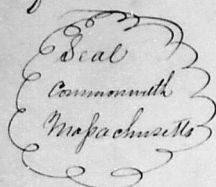 Seal
Commonwelth
Maſsachusetts